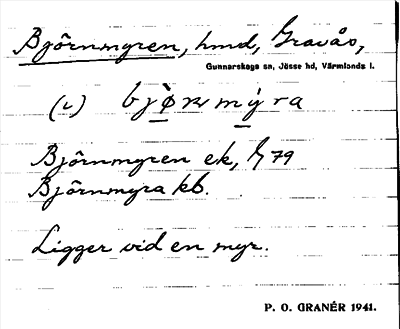 Björnmyren, hmd, Gravås,
Gunnarskogs sn, Jösse hd, Värmlands l.
(L)
Björnmyren ek, G 79
Björnmyra kb.
Ligger vid en myr.
P. O. GRANÉR 1941.